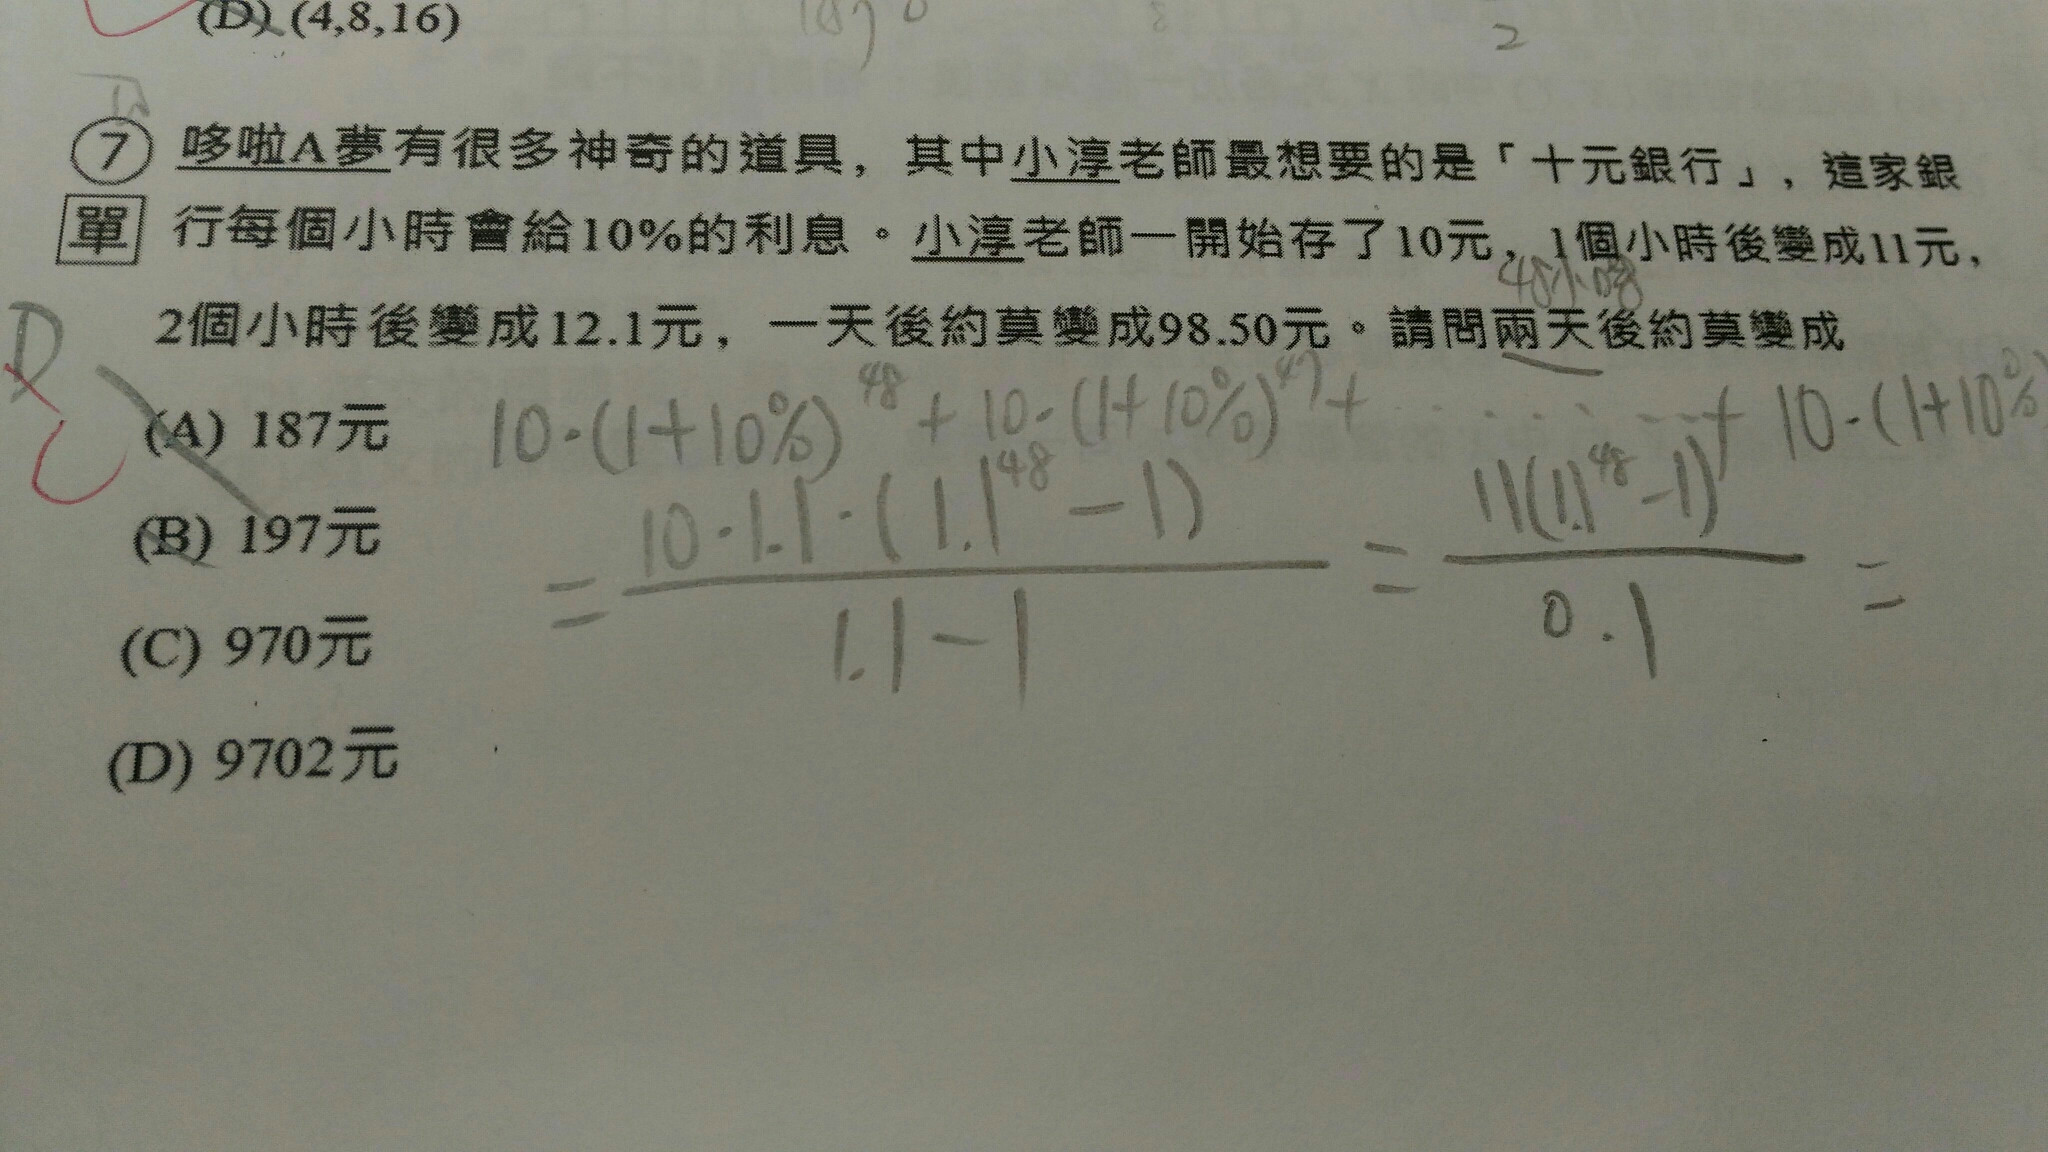 (D) (4,8,16)
2
7 哆啦A夢有很多神奇的道具，其中小淳老師最想要的是「十元銀行」，這家銀
單 行每個小時會給10%的利息。小淳老師一開始存了10元，1個小時後變成11元，
48小時
2個小時後變成12.1元，一天後約莫變成98.50元。請問兩天後約莫變成
D
C
(A) 187元 10·(1+10%)^48 + 10·(1+10%)^47 + ········ + 10·(1+10%)
(B) 197元 = 10·1.1·(1.1^48 - 1) / 1.1 - 1 = 11(1.1^48 - 1) / 0.1 =
(C) 970元
(D) 9702元